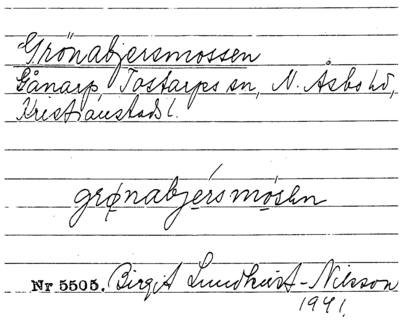 Grönabjersmossen
Gånarp, Tostarps sn, N. Åsbo hd,
Kristianstads l.
grø̲nabjérsmò̲sen
Nr 5505. Birgit Lundkvist-Nilsson
1941.